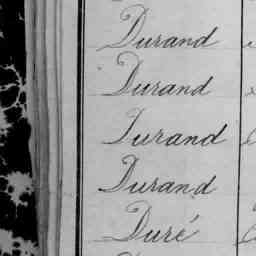 Durand
Durand
Durand
Durand
Duré